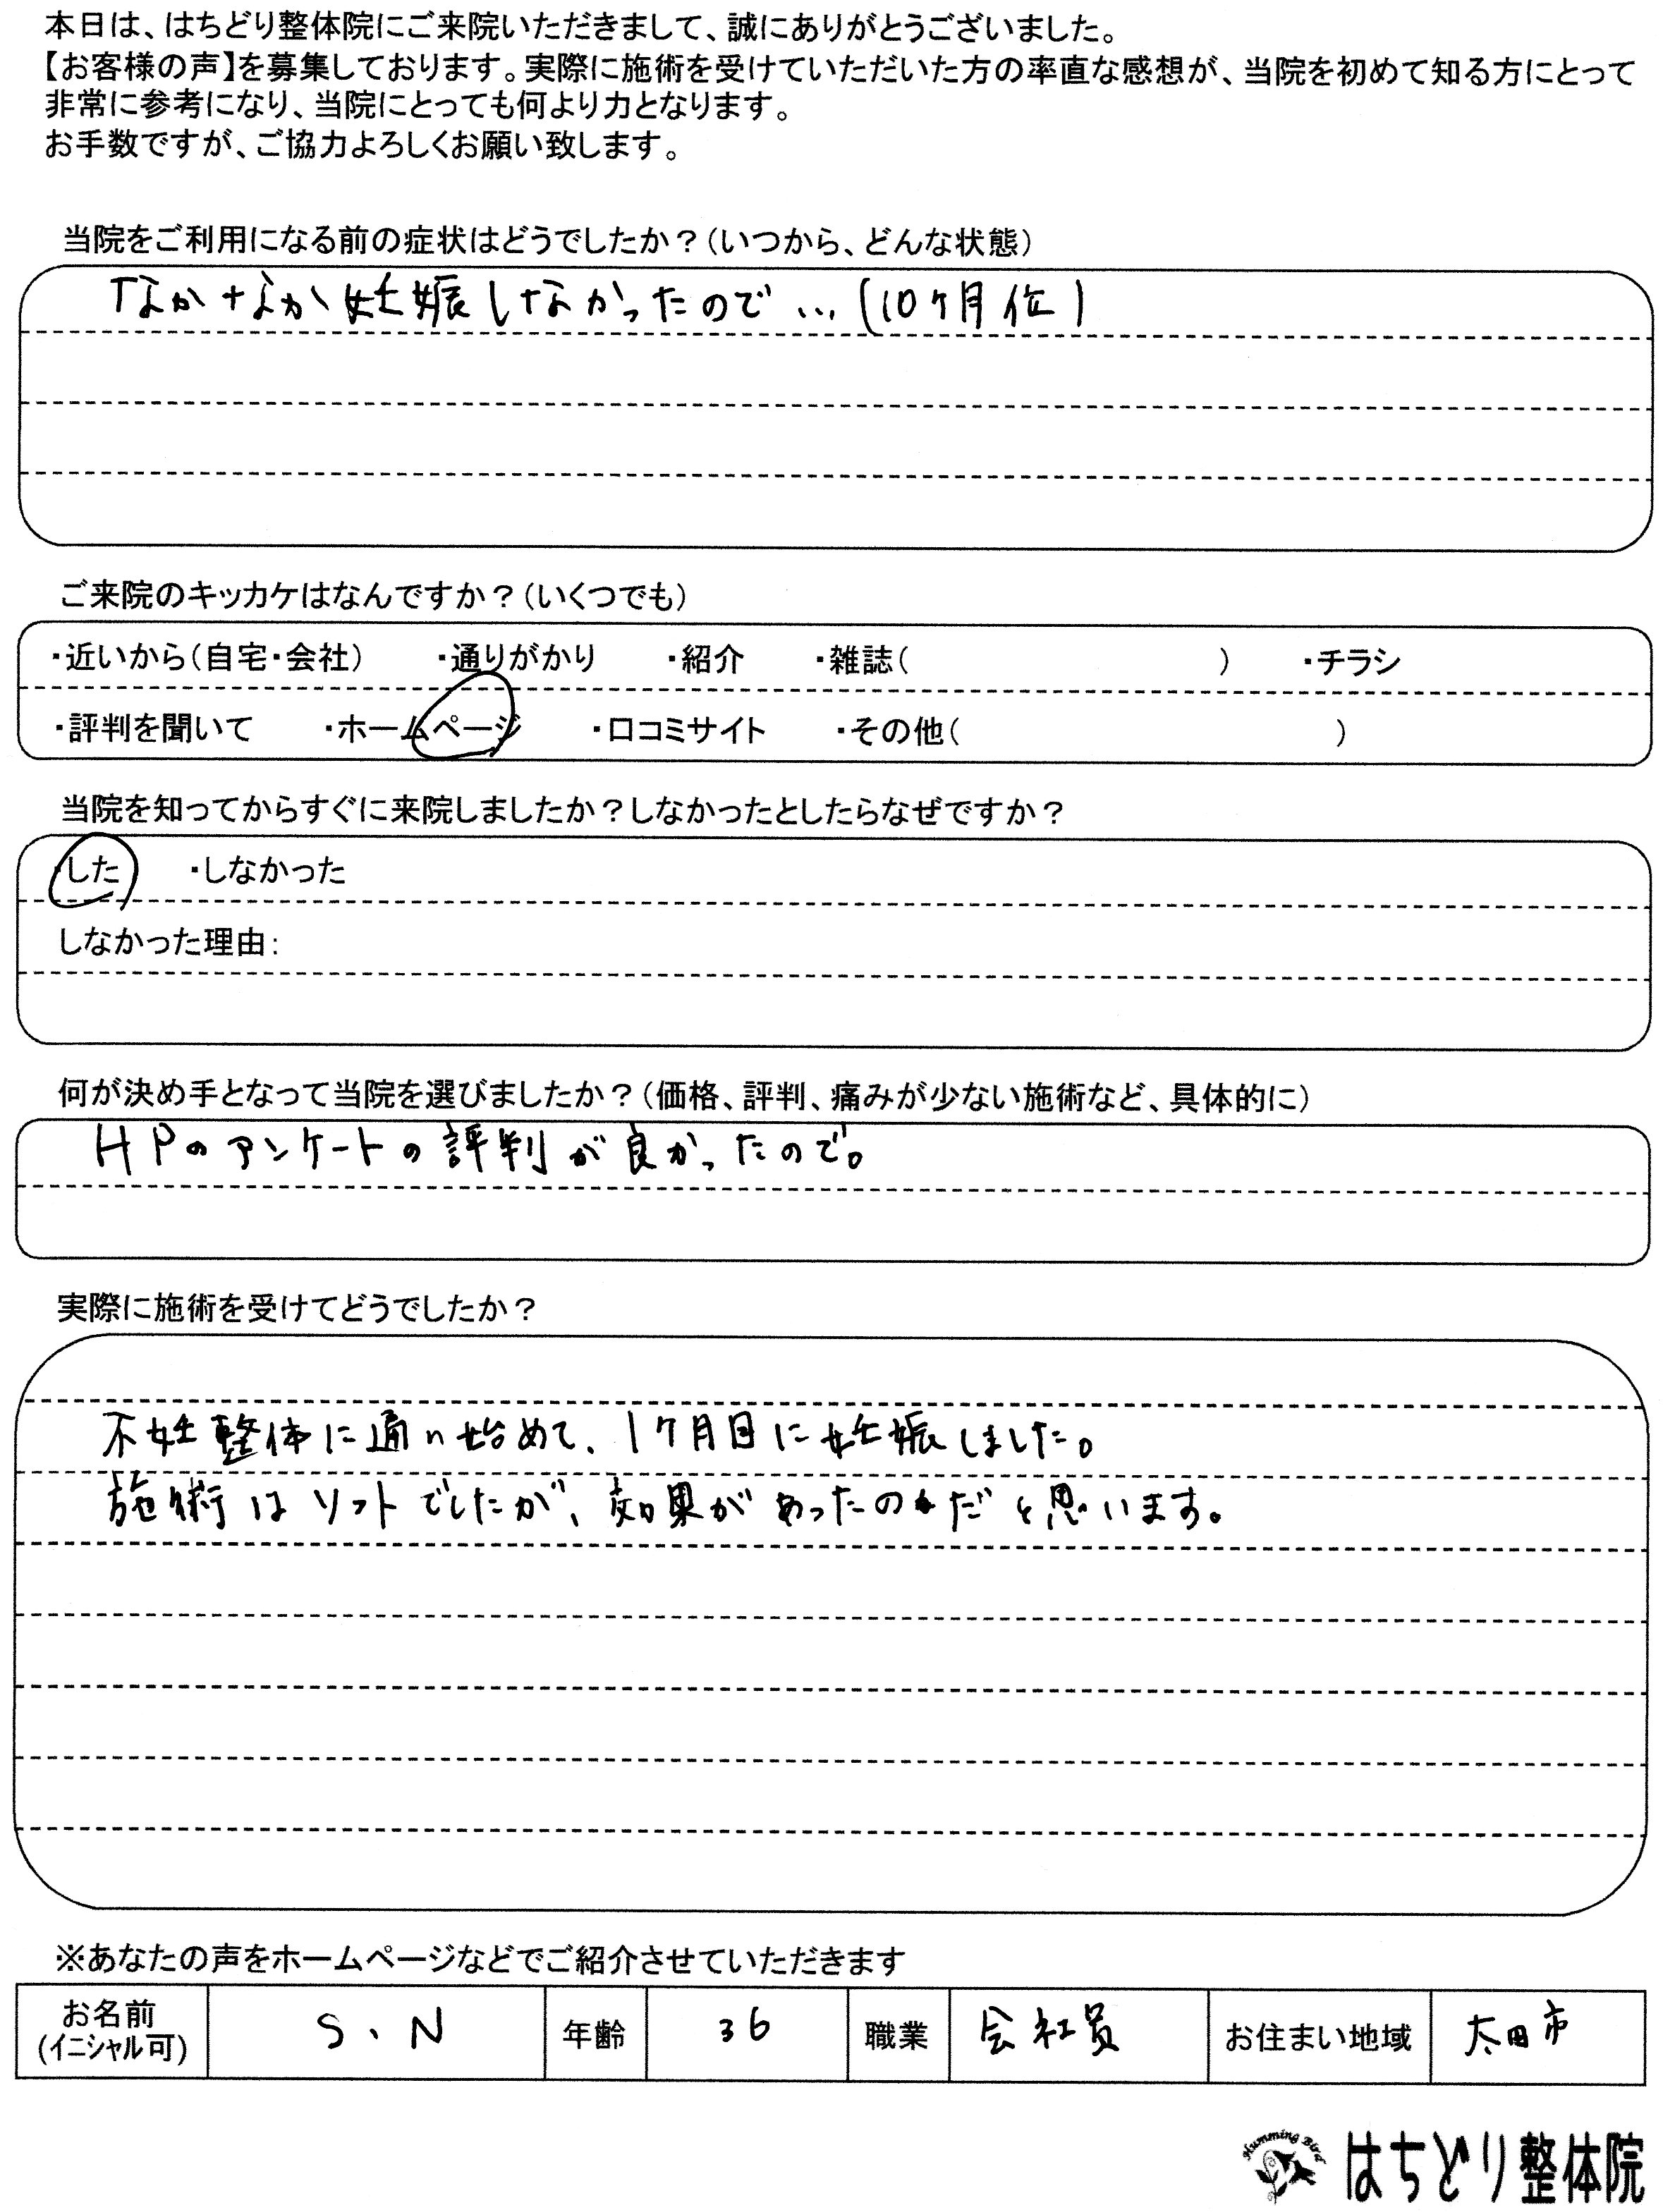 本日は、はちどり整体院にご来院いただきまして、誠にありがとうございました。
【お客様の声】を募集しております。実際に施術を受けていただいた方の率直な感想が、当院を初めて知る方にとって
非常に参考になり、当院にとっても何より力となります。
お手数ですが、ご協力よろしくお願い致します。
当院をご利用になる前の症状はどうでしたか？（いつから、どんな状態）
なかなか妊娠しなかったので…（10ヶ月位）
ご来院のキッカケはなんですか？（いくつでも）
・近いから（自宅・会社） ・通りがかり ・紹介 ・雑誌（ ） ・チラシ
・評判を聞いて ・ホームページ ・口コミサイト ・その他（ ）
当院を知ってからすぐに来院しましたか？しなかったとしたらなぜですか？
・した ・しなかった
しなかった理由：
何が決め手となって当院を選びましたか？（価格、評判、痛みが少ない施術など、具体的に）
HPのアンケートの評判が良かったので。
実際に施術を受けてどうでしたか？
不妊整体に通い始めて、1ヶ月目に妊娠しました。
施術はソフトでしたが、効果があったのだと思います。
※あなたの声をホームページなどでご紹介させていただきます
お名前 (イニシャル可) S、N 年齢 36 職業 会社員 お住まい地域 太田市
Humming Bird はちどり整体院